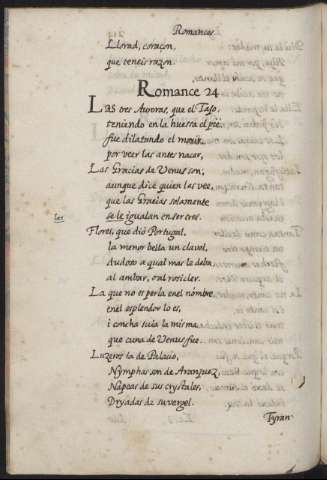 Romances
Llorad, coraçon,
que teneis razon.
Romance 24
LAS tres Auroras, que el Tajo,
teniendo en la huessa el pie
fue dilatando el morir,
por veer las antes nacer,
Las Gracias de Venus son,
aunque dice quien las vee,
que las Gracias solamente
las
se le igualan en ser tres.
Flores, que dió Portugal,
la menor bella un clavel,
dudoso a qual mas le deba
al ambar, o al rosicler.
La que no es perla en el nombre
en el esplendor lo es,
i concha suia la misma
que cuna de Venus fue.
Luzeros ia de Palacio,
Nymphas son de Aranjuez,
Napeas de sus crystales,
Dryadas de su vergel.
Tyran